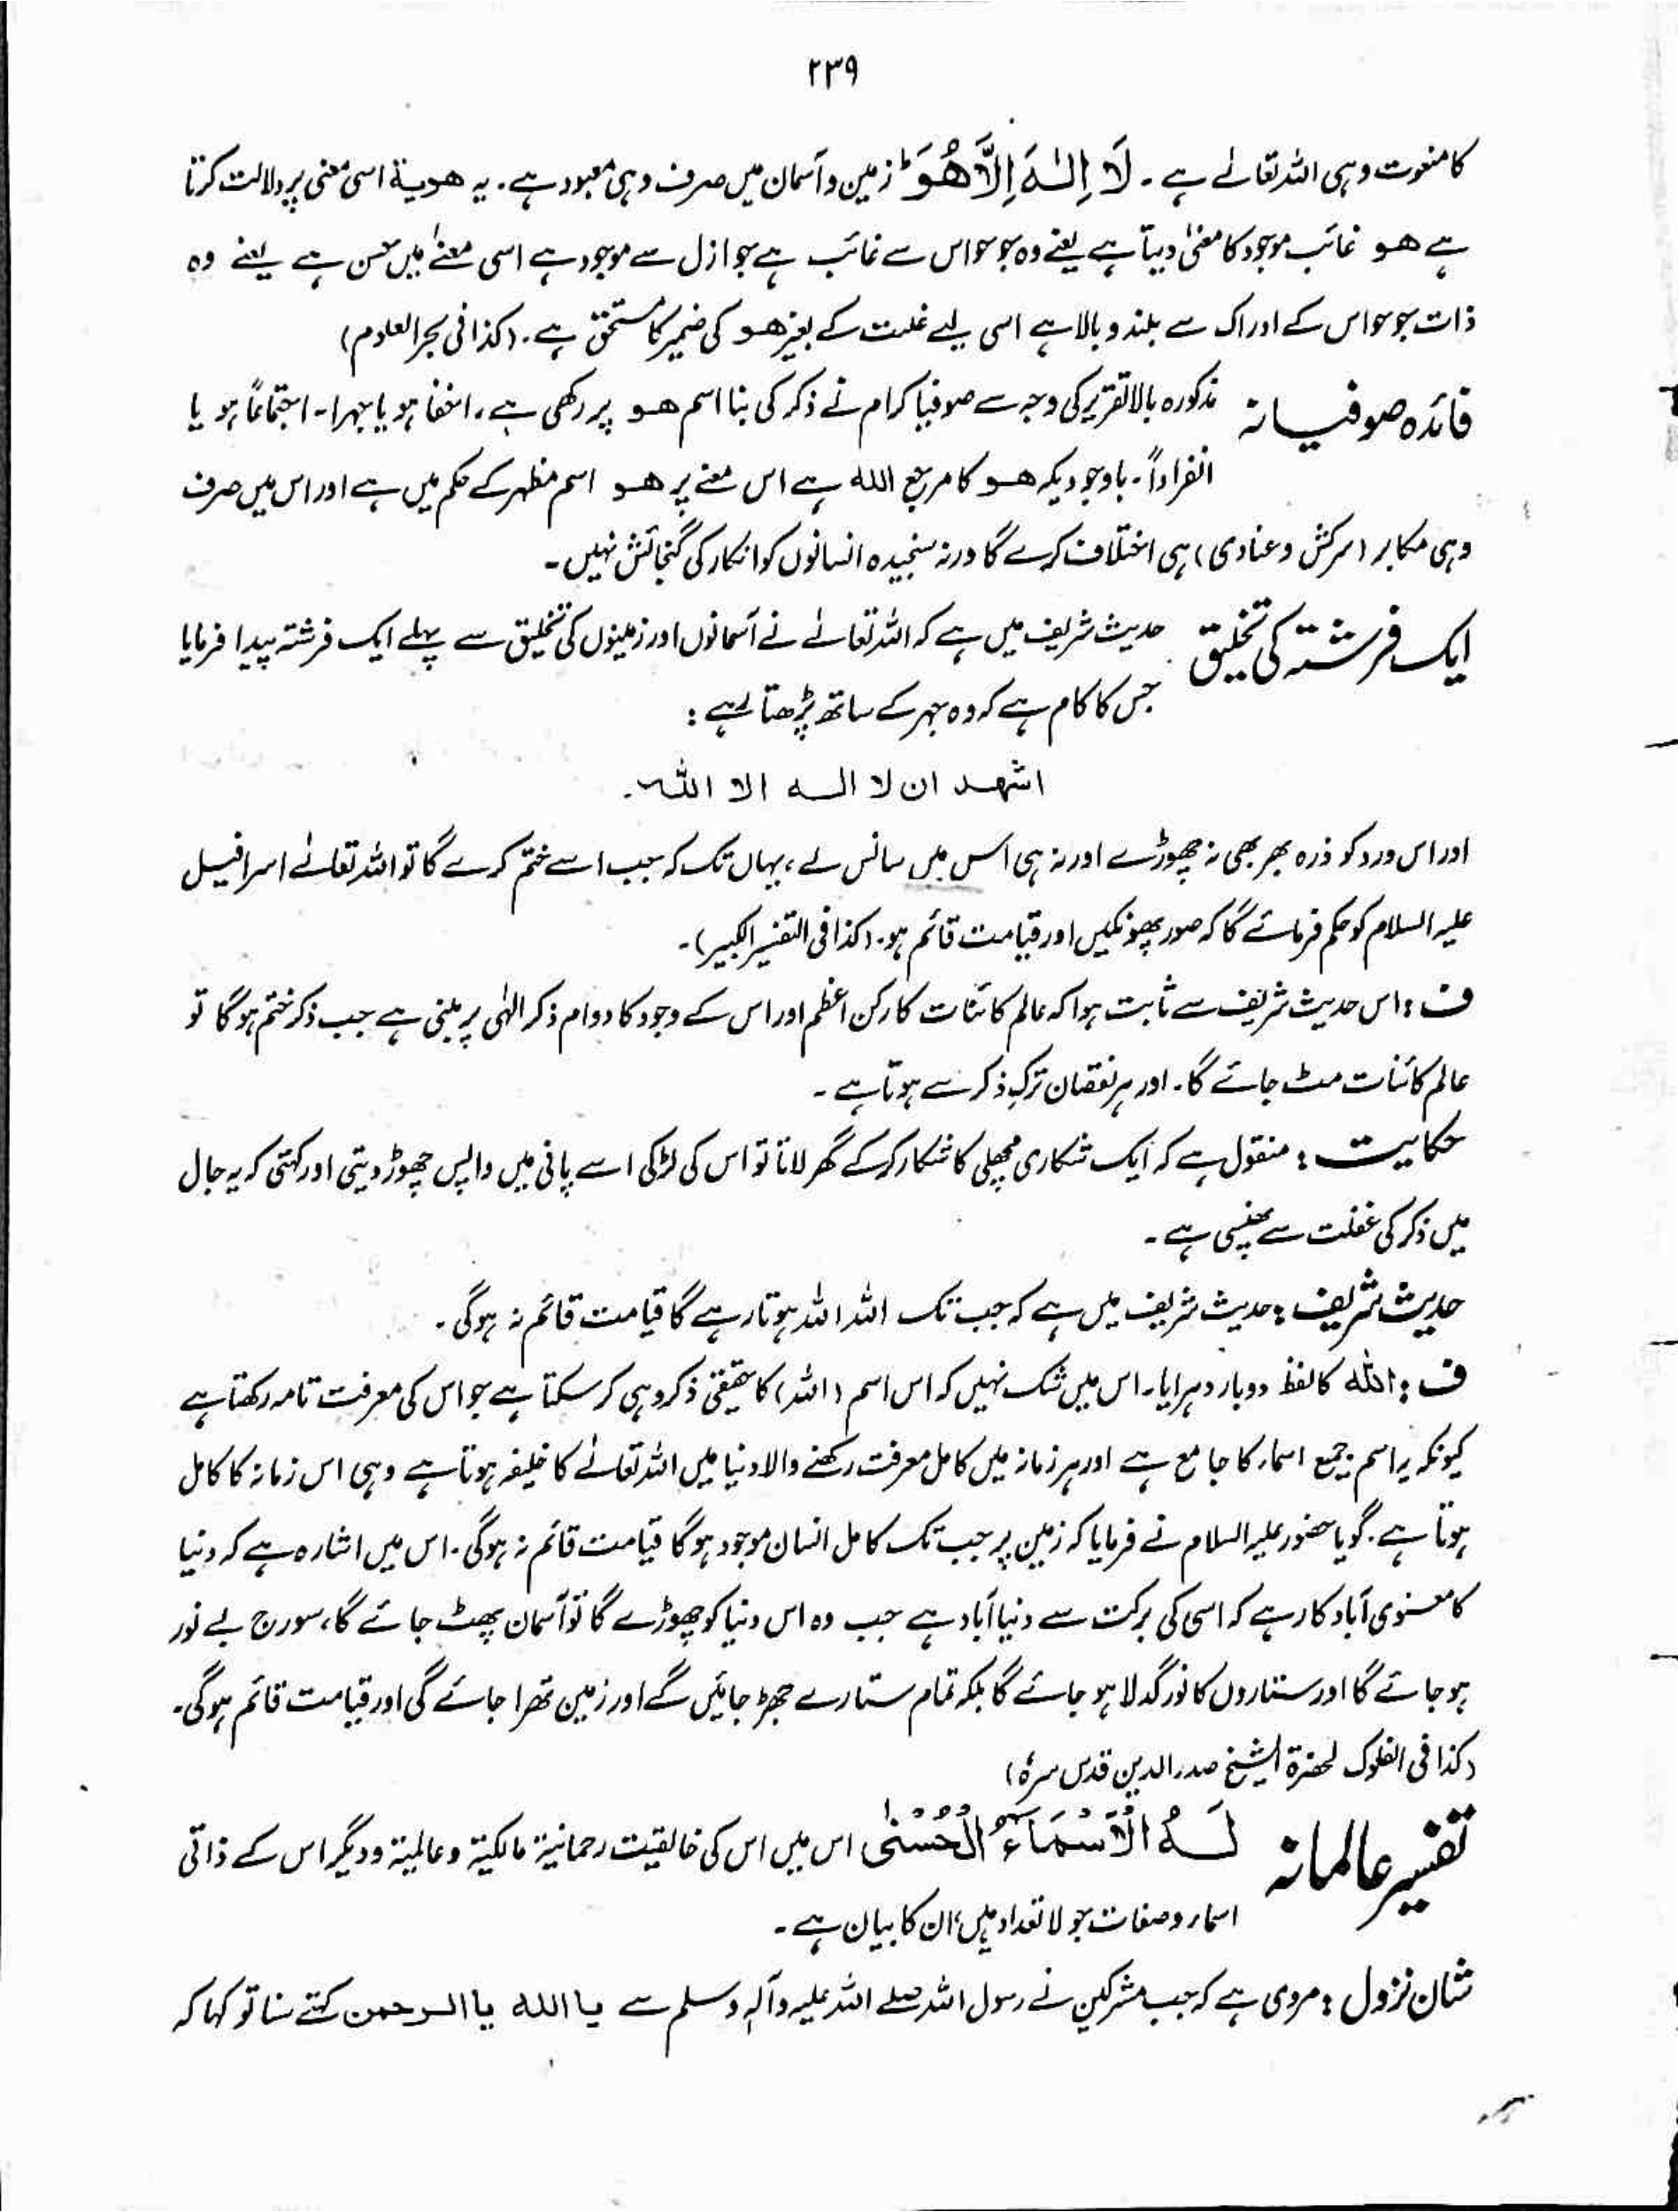 ۲۳۹
کا منعوت وہی اللہ تعالےٰ ہے۔ لَا اِلٰهَ اِلَّا هُوَ ؕ زمین و آسمان میں صرف وہی معبود ہے۔ یہ ھویة اسی معنی پر دلالت کرتا
ہے ھو غائب موجود کا معنیٰ دیتا ہے یعنے وہ جو حواس سے غائب ہے جو ازل سے موجود ہے اسی معنے میں حسن ہے یعنے وہ
ذات جو حواس کے ادراک سے بلند و بالا ہے اسی لیے علت کے بغیر ھو کی ضمیر کا مستحق ہے۔ (کذا فی بحر العلوم)
فائدہ صوفیانہ مذکورہ بالا تقریر کی وجہ سے صوفیا کرام نے ذکر کی بنا اسم ھو پر رکھی ہے۔ اخفا ہو یا جہرا۔ اجتماعاً ہو یا
انفراداً۔ باوجودیکہ ھو کا مرجع اللہ ہے اس معنے پر ھو اسم مظہر کے حکم میں ہے اور اس میں صرف
وہی مکابر (سرکش و عنادی) ہی اختلاف کرے گا ورنہ سنجیدہ انسانوں کو انکار کی گنجائش نہیں۔
ایک فرشتہ کی تخلیق حدیث شریف میں ہے کہ اللہ تعالےٰ نے آسمانوں اور زمینوں کی تخلیق سے پہلے ایک فرشتہ پیدا فرمایا
جس کا کام ہے کہ وہ جہر کے ساتھ پڑھتا رہے :
اشهد ان لا اله الا الله۔
اور اس ورد کو ذرہ بھر بھی نہ چھوڑے اور نہ ہی اس میں سانس لے، یہاں تک کہ جب اسے ختم کرے گا تو اللہ تعالےٰ اسرافیل
علیہ السلام کو حکم فرمائے گا کہ صور پھونکیں اور قیامت قائم ہو۔ (کذا فی التفسیر الکبیر)۔
ف : اس حدیث شریف سے ثابت ہوا کہ عالم کائنات کا رکن اعظم اور اس کے وجود کا دوام ذکر الٰہی پر مبنی ہے جب ذکر ختم ہو گا تو
عالم کائنات مٹ جائے گا۔ اور ہر نقصان ترکِ ذکر سے ہوتا ہے۔
حکایت : منقول ہے کہ ایک شکاری مچھلی کا شکار کرکے گھر لاتا تو اس کی لڑکی اسے پانی میں واپس چھوڑ دیتی اور کہتی کہ یہ جال
میں ذکر کی غفلت سے پھنسی ہے۔
حدیث شریف : حدیث شریف میں ہے کہ جب تک اللہ اللہ ہوتا رہے گا قیامت قائم نہ ہوگی۔
ف : اللہ کا لفظ دوبار دہرایا۔ اس میں شک نہیں کہ اس اسم (اللہ) کا حقیقی ذکر وہی کر سکتا ہے جو اس کی معرفت تامہ رکھتا ہے
کیونکہ یہ اسم جمیع اسماء کا جامع ہے اور ہر زمانہ میں کامل معرفت رکھنے والا دنیا میں اللہ تعالےٰ کا خلیفہ ہوتا ہے وہی اس زمانہ کا کامل
ہوتا ہے۔ گویا حضور علیہ السلام نے فرمایا کہ زمین پر جب تک کامل انسان موجود ہو گا قیامت قائم نہ ہوگی۔ اس میں اشارہ ہے کہ دنیا
کا معنوی آباد کار ہے کہ اسی کی برکت سے دنیا آباد ہے جب وہ اس دنیا کو چھوڑے گا تو آسمان پھٹ جائے گا، سورج بے نور
ہو جائے گا اور ستاروں کا نور گدلا ہو جائے گا بلکہ تمام ستارے جھڑ جائیں گے اور زمین تھرا جائے گی اور قیامت قائم ہوگی۔
(کذا فی الفلوک لحضرۃ الشیخ صدر الدین قدس سرہٗ)
تفسیر عالمانہ لَهُ الْاَسْمَآءُ الْحُسْنٰى اس میں اس کی خالقیت رحمانیۃ مالکیۃ و عالمیۃ و دیگر اس کے ذاتی
اسماء و صفات جو لاتعداد ہیں، ان کا بیان ہے۔
شان نزول : مروی ہے کہ جب مشرکین نے رسول اللہ صلے اللہ علیہ وآلہٖ وسلم سے یا اللہ یا الرحمن کہتے سنا تو کہا کہ